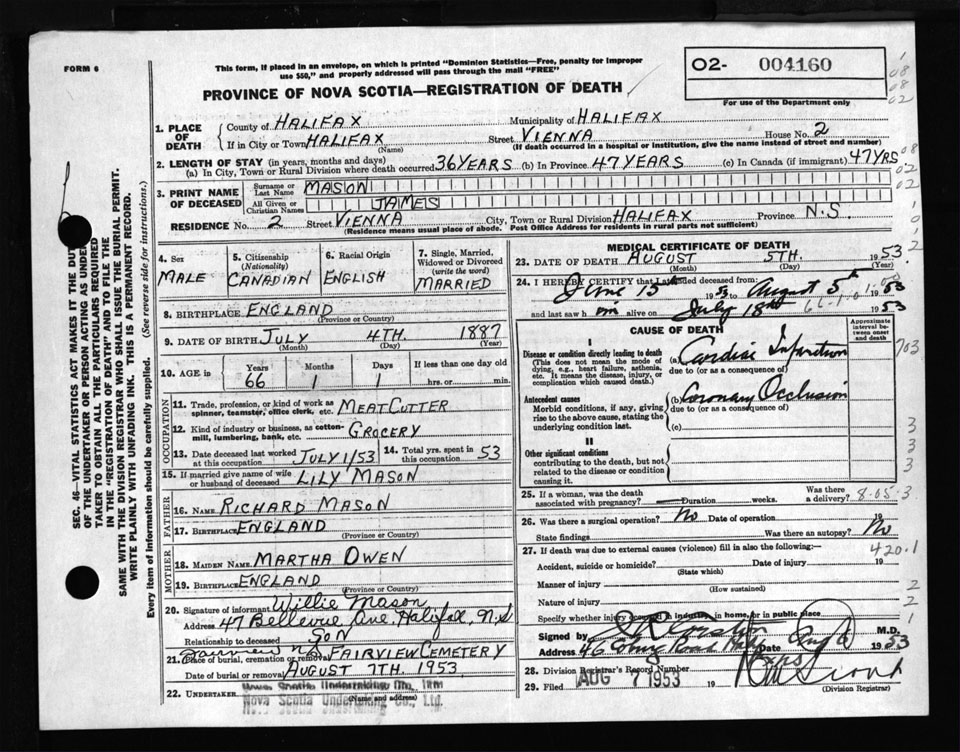 FORM 6
This form, if placed in an envelope, on which is printed "Dominion Statistics—Free, penalty for improper
use $50," and properly addressed will pass through the mail "FREE"
PROVINCE OF NOVA SCOTIA—REGISTRATION OF DEATH
02- 004160
For use of the Department only
1. PLACE OF DEATH
County of HALIFAX Municipality of HALIFAX
If in City or Town HALIFAX Street VIENNA House No. 2
(Name) (If death occurred in a hospital or institution, give the name instead of street and number)
2. LENGTH OF STAY (in years, months and days)
(a) In City, Town or Rural Division where death occurred 36 YEARS (b) In Province 47 YEARS (c) In Canada (if immigrant) 47 YRS.
3. PRINT NAME OF DECEASED
Surname or Last Name MASON
All Given or Christian Names JAMES
RESIDENCE No. 2 Street VIENNA City, Town or Rural Division HALIFAX Province N.S.
(Residence means usual place of abode. Post Office Address for residents in rural parts not sufficient)
4. Sex MALE
5. Citizenship (Nationality) CANADIAN
6. Racial Origin ENGLISH
7. Single, Married, Widowed or Divorced (write the word) MARRIED
8. BIRTHPLACE ENGLAND
(Province or Country)
9. DATE OF BIRTH JULY 4TH. 1887
(Month) (Day) (Year)
10. AGE in Years 66 Months 1 Days 1 If less than one day old
hrs. or min.
OCCUPATION
11. Trade, profession, or kind of work as spinner, teamster, office clerk, etc. MEAT CUTTER
12. Kind of industry or business, as cotton-mill, lumbering, bank, etc. GROCERY
13. Date deceased last worked at this occupation JULY 1/53 14. Total yrs. spent in this occupation 53
15. If married give name of wife or husband of deceased LILY MASON
FATHER
16. NAME RICHARD MASON
17. BIRTHPLACE ENGLAND
(Province or Country)
MOTHER
18. MAIDEN NAME MARTHA OWEN
19. BIRTHPLACE ENGLAND
(Province or Country)
20. Signature of informant Willie Mason
Address 47 Bellevue Ave, Halifax, N.S
Relationship to deceased SON
21. Place of burial, cremation or removal Fairview N.S. FAIRVIEW CEMETERY
Date of burial or removal AUGUST 7TH. 1953
22. UNDERTAKER Nova Scotia Undertaking Co., Ltd.
(Name and address)
Nova Scotia Undertaking Co., Ltd.
MEDICAL CERTIFICATE OF DEATH
23. DATE OF DEATH AUGUST 5TH. 1953
(Month) (Day) (Year)
24. I HEREBY CERTIFY that I attended deceased from:
June 15th 1953 to August 5th
and last saw him alive on July 18th 1953
CAUSE OF DEATH
Approximate interval between onset and death
I
Disease or condition directly leading to death (a) Cardiac Infarction
(This does not mean the mode of dying, e.g., heart failure, asthenia, etc. It means the disease, injury, or complication which caused death.)
due to (or as a consequence of)
Antecedent causes (b) Coronary Occlusion
Morbid conditions, if any, giving rise to the above cause, stating the underlying condition last.
due to (or as a consequence of)
(c)
II
Other significant conditions
contributing to the death, but not related to the disease or condition causing it.
25. If a woman, was the death associated with pregnancy? Duration weeks. Was there a delivery? 8.05.3
26. Was there a surgical operation? No Date of operation 19
State findings Was there an autopsy? No
27. If death was due to external causes (violence) fill in also the following:— 420.1
Accident, suicide or homicide? Date of injury 19
(State which)
Manner of injury
(How sustained)
Nature of injury
Specify whether injury occurred in industry, in home, or in public place
Signed by M.D.
Address 46 Date Aug 1953
28. Division Registrar's Record Number
29. Filed AUG 7 1953 19
(Division Registrar)
SEC. 46—VITAL STATISTICS ACT MAKES IT THE DUTY
OF THE UNDERTAKER OR PERSON ACTING AS UNDER-
TAKER TO OBTAIN ALL THE PARTICULARS REQUIRED
IN THE "REGISTRATION OF DEATH" AND TO FILE THE
SAME WITH THE DIVISION REGISTRAR WHO SHALL ISSUE THE BURIAL PERMIT.
WRITE PLAINLY WITH UNFADING INK. THIS IS A PERMANENT RECORD.
Every item of information should be carefully supplied. (See reverse side for instructions.)
703